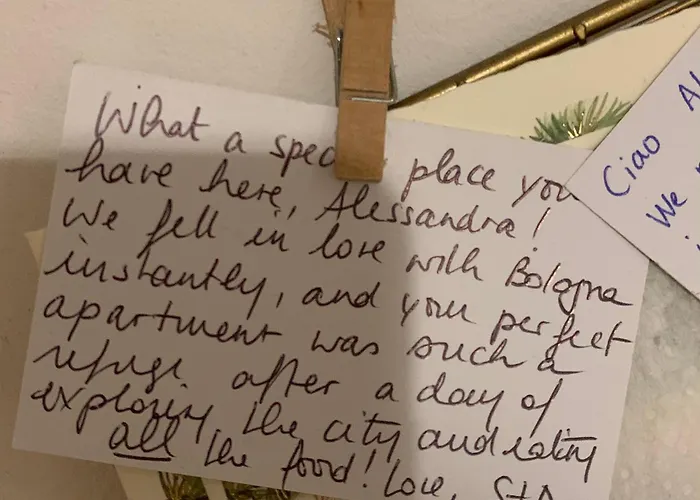 What a spec place you
have here, Alessandra!
We fell in love with Bologna
instantly, and your perfect
apartment was such a
refuge after a day of
exploring the city and eating
all the food! Love,
Ciao Al
We